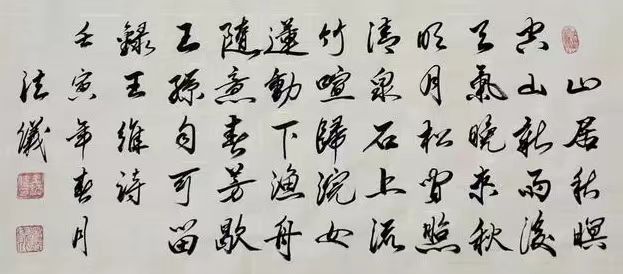 山居秋暝
空山新雨後
天氣晚來秋
明月松間照
清泉石上流
竹喧歸浣女
蓮動下漁舟
隨意春芳歇
王孫自可留
錄王維詩
壬寅年春月
法儀